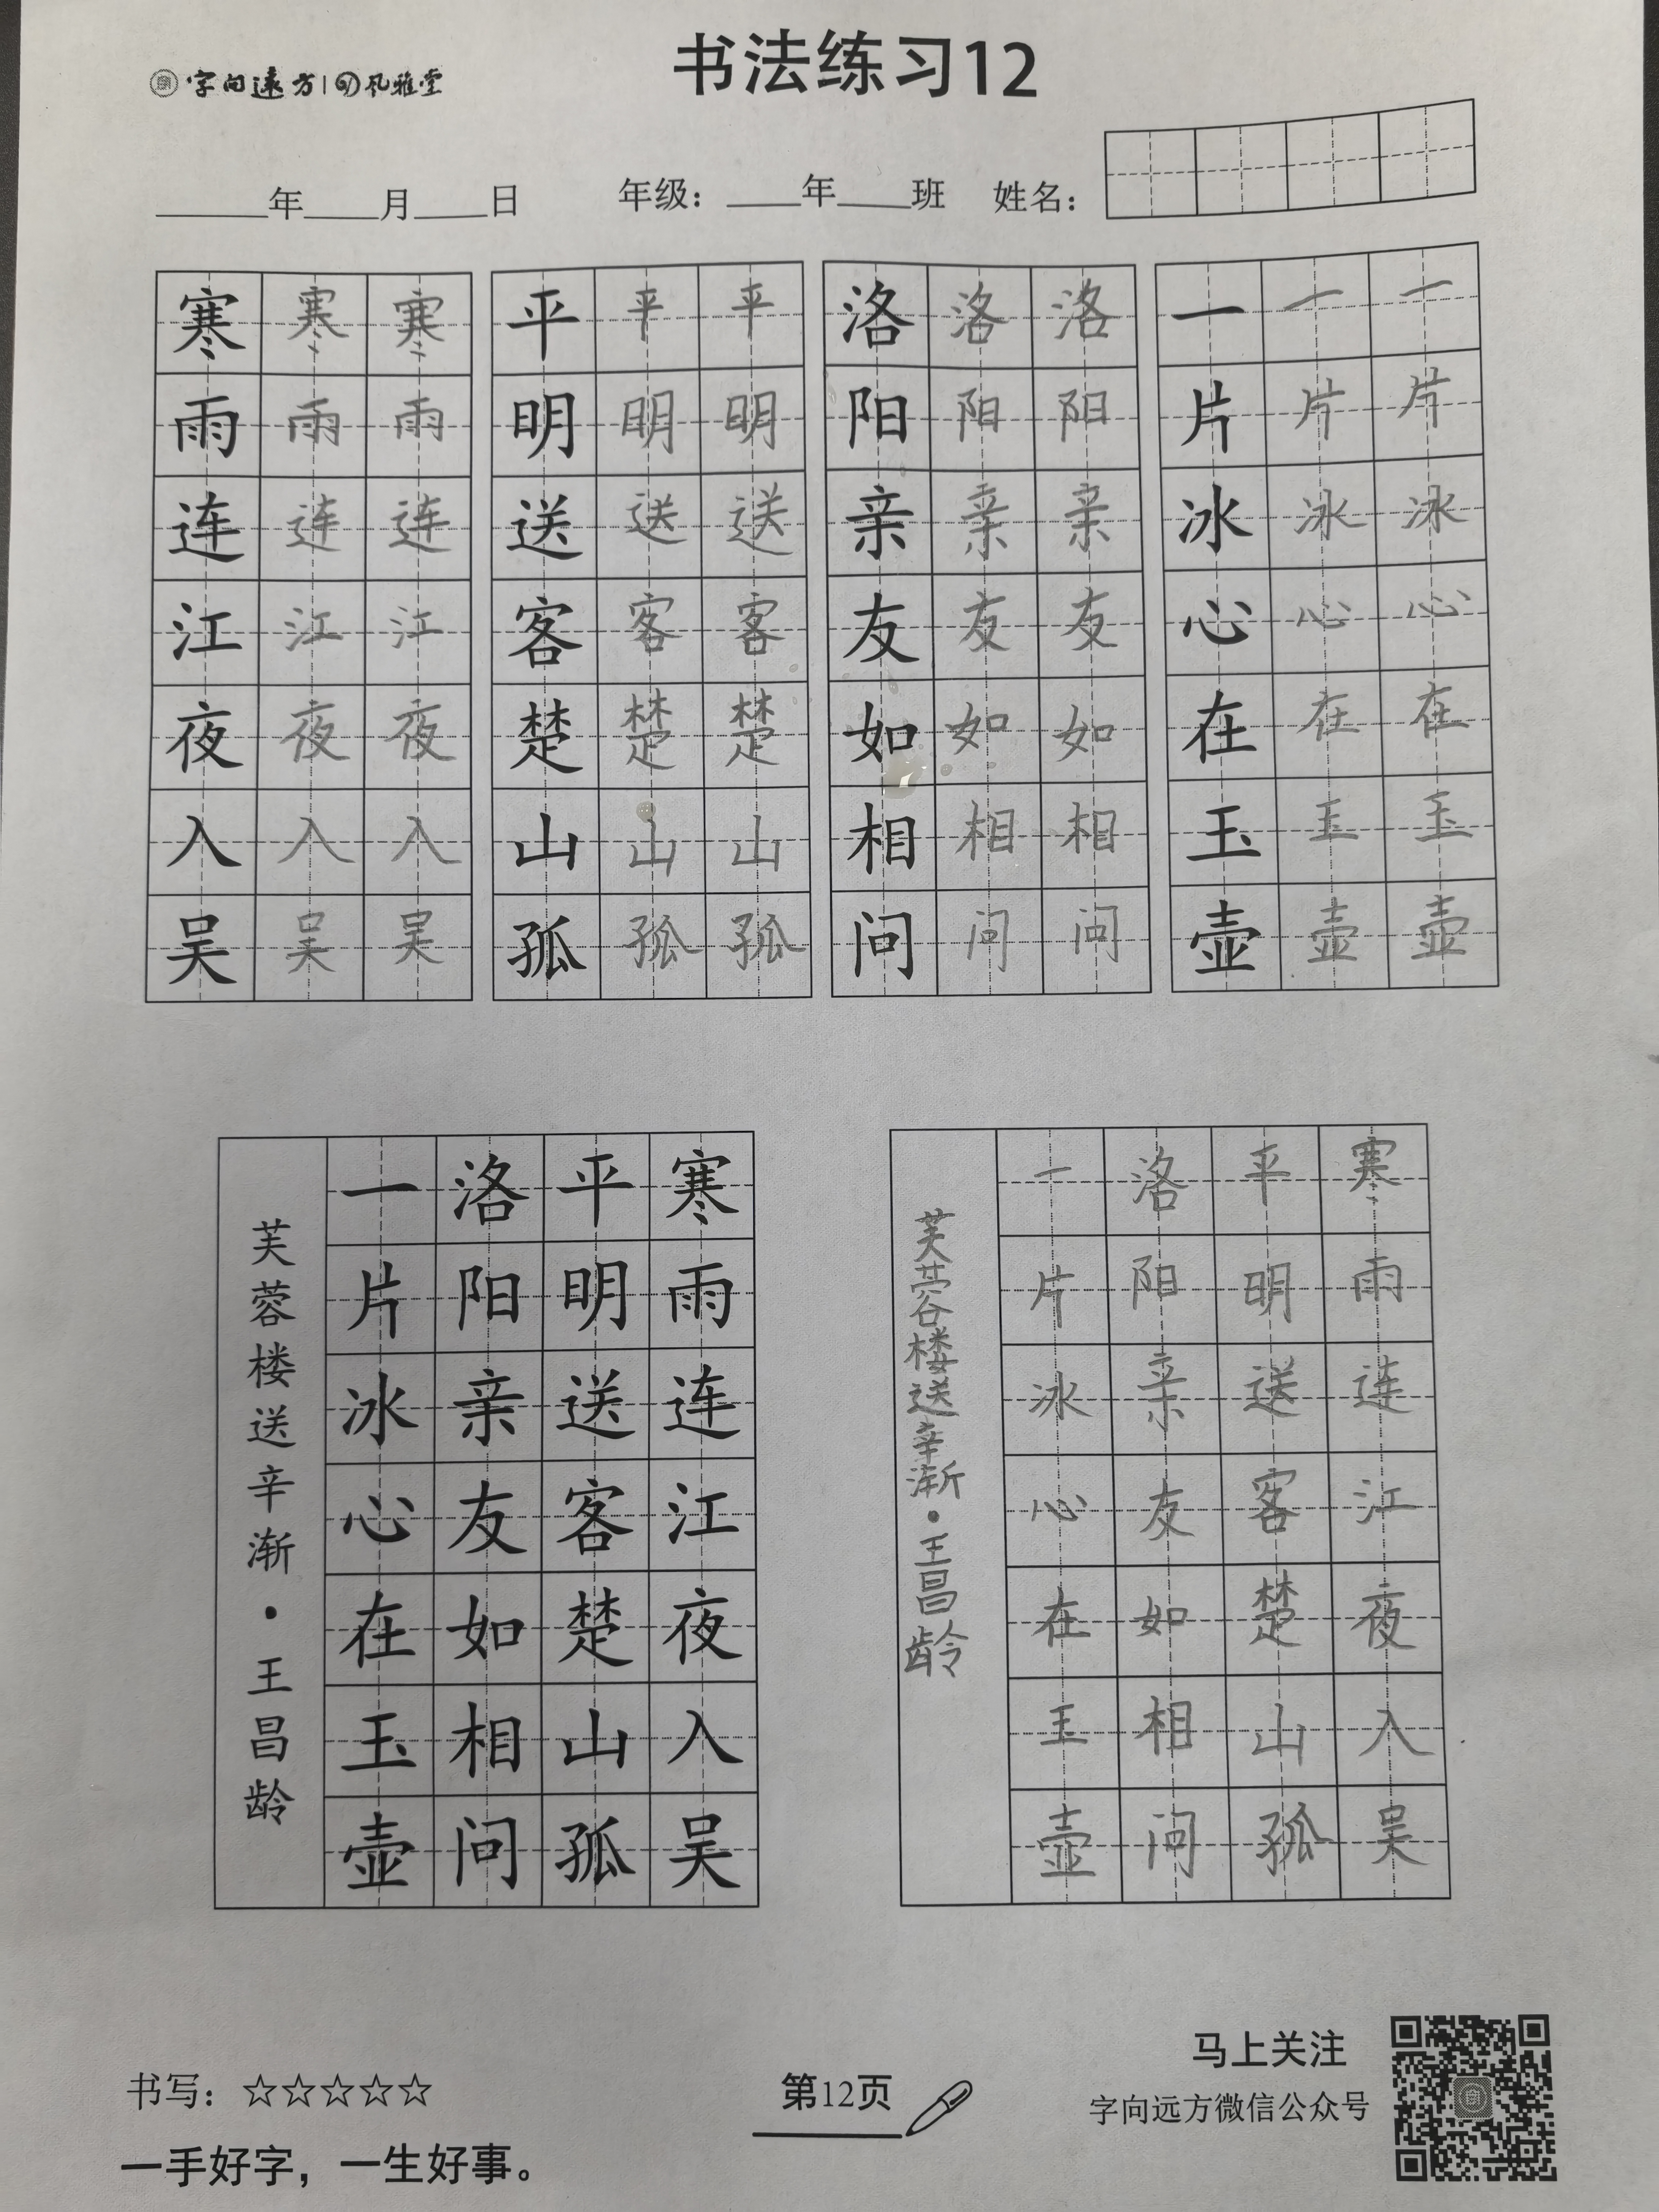 字向遠方 | 风雅堂
书法练习12
____年____月____日 年级：____年____班 姓名：
寒 寒 寒 平 平 平 洛 洛 洛 一 一 一
雨 雨 雨 明 明 明 阳 阳 阳 片 片 片
连 连 连 送 送 送 亲 亲 亲 冰 冰 冰
江 江 江 客 客 客 友 友 友 心 心 心
夜 夜 夜 楚 楚 楚 如 如 如 在 在 在
入 入 入 山 山 山 相 相 相 玉 玉 玉
吴 吴 吴 孤 孤 孤 问 问 问 壶 壶 壶
寒雨连江夜入吴
平明送客楚山孤
洛阳亲友如相问
一片冰心在玉壶
芙蓉楼送辛渐·王昌龄
寒雨连江夜入吴
平明送客楚山孤
洛阳亲友如相问
一片冰心在玉壶
芙蓉楼送辛渐·王昌龄
书写：☆☆☆☆☆
一手好字，一生好事。
第12页
马上关注
字向远方微信公众号